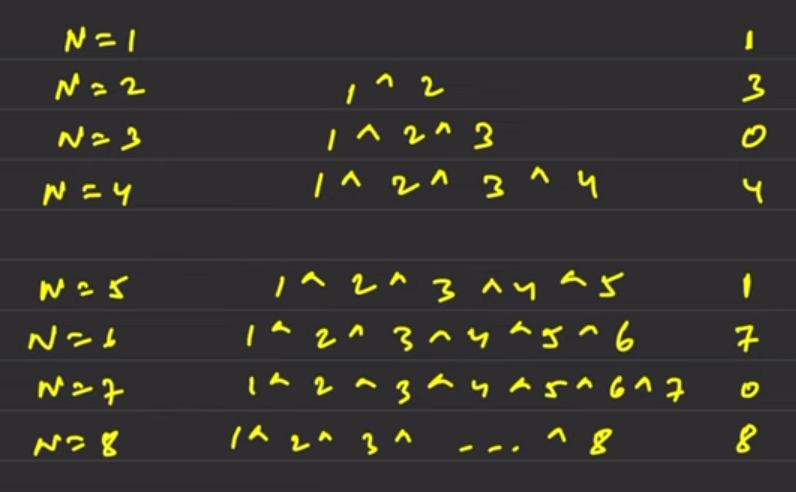 N=1 1
N=2 1^2 3
N=3 1^2^3 0
N=4 1^2^3^4 4
N=5 1^2^3^4^5 1
N=6 1^2^3^4^5^6 7
N=7 1^2^3^4^5^6^7 0
N=8 1^2^3^ ---. ^8 8